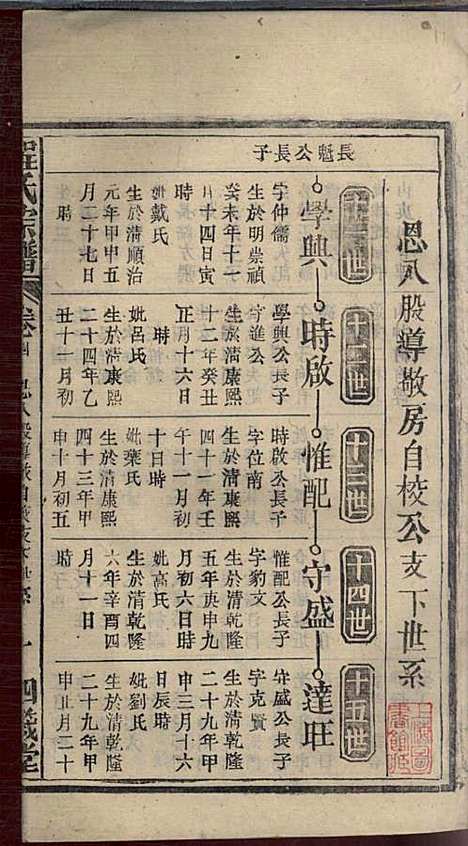 恩八股尊敬房自校公支下世系
十二世
十三世
十四世
十五世
長魁公長子
學興
時啟
惟配
守盛
達旺
字仲儒
生於明崇禎
癸未年十一
月十四日寅
時
妣戴氏
生於清順治
元年甲申五
月二十七日
時
學興公長子
字進公
生於清康熙
十二年癸丑
正月十六日
時
妣呂氏
生於清康熙
二十四年乙
丑十一月初
時啟公長子
字位南
生於清康熙
四十一年壬
午十一月初
十日時
妣葉氏
生於清康熙
四十三年甲
申十月初五
惟配公長子
字豹文
生於清乾隆
五年庚申九
月初六日時
妣高氏
生於清乾隆
六年辛酉四
月十一日
時
守盛公長子
字克賢
生於清乾隆
二十九年甲
申三月十六
日辰時
妣劉氏
生於清乾隆
二十九年甲
申正月二十
氏宗譜